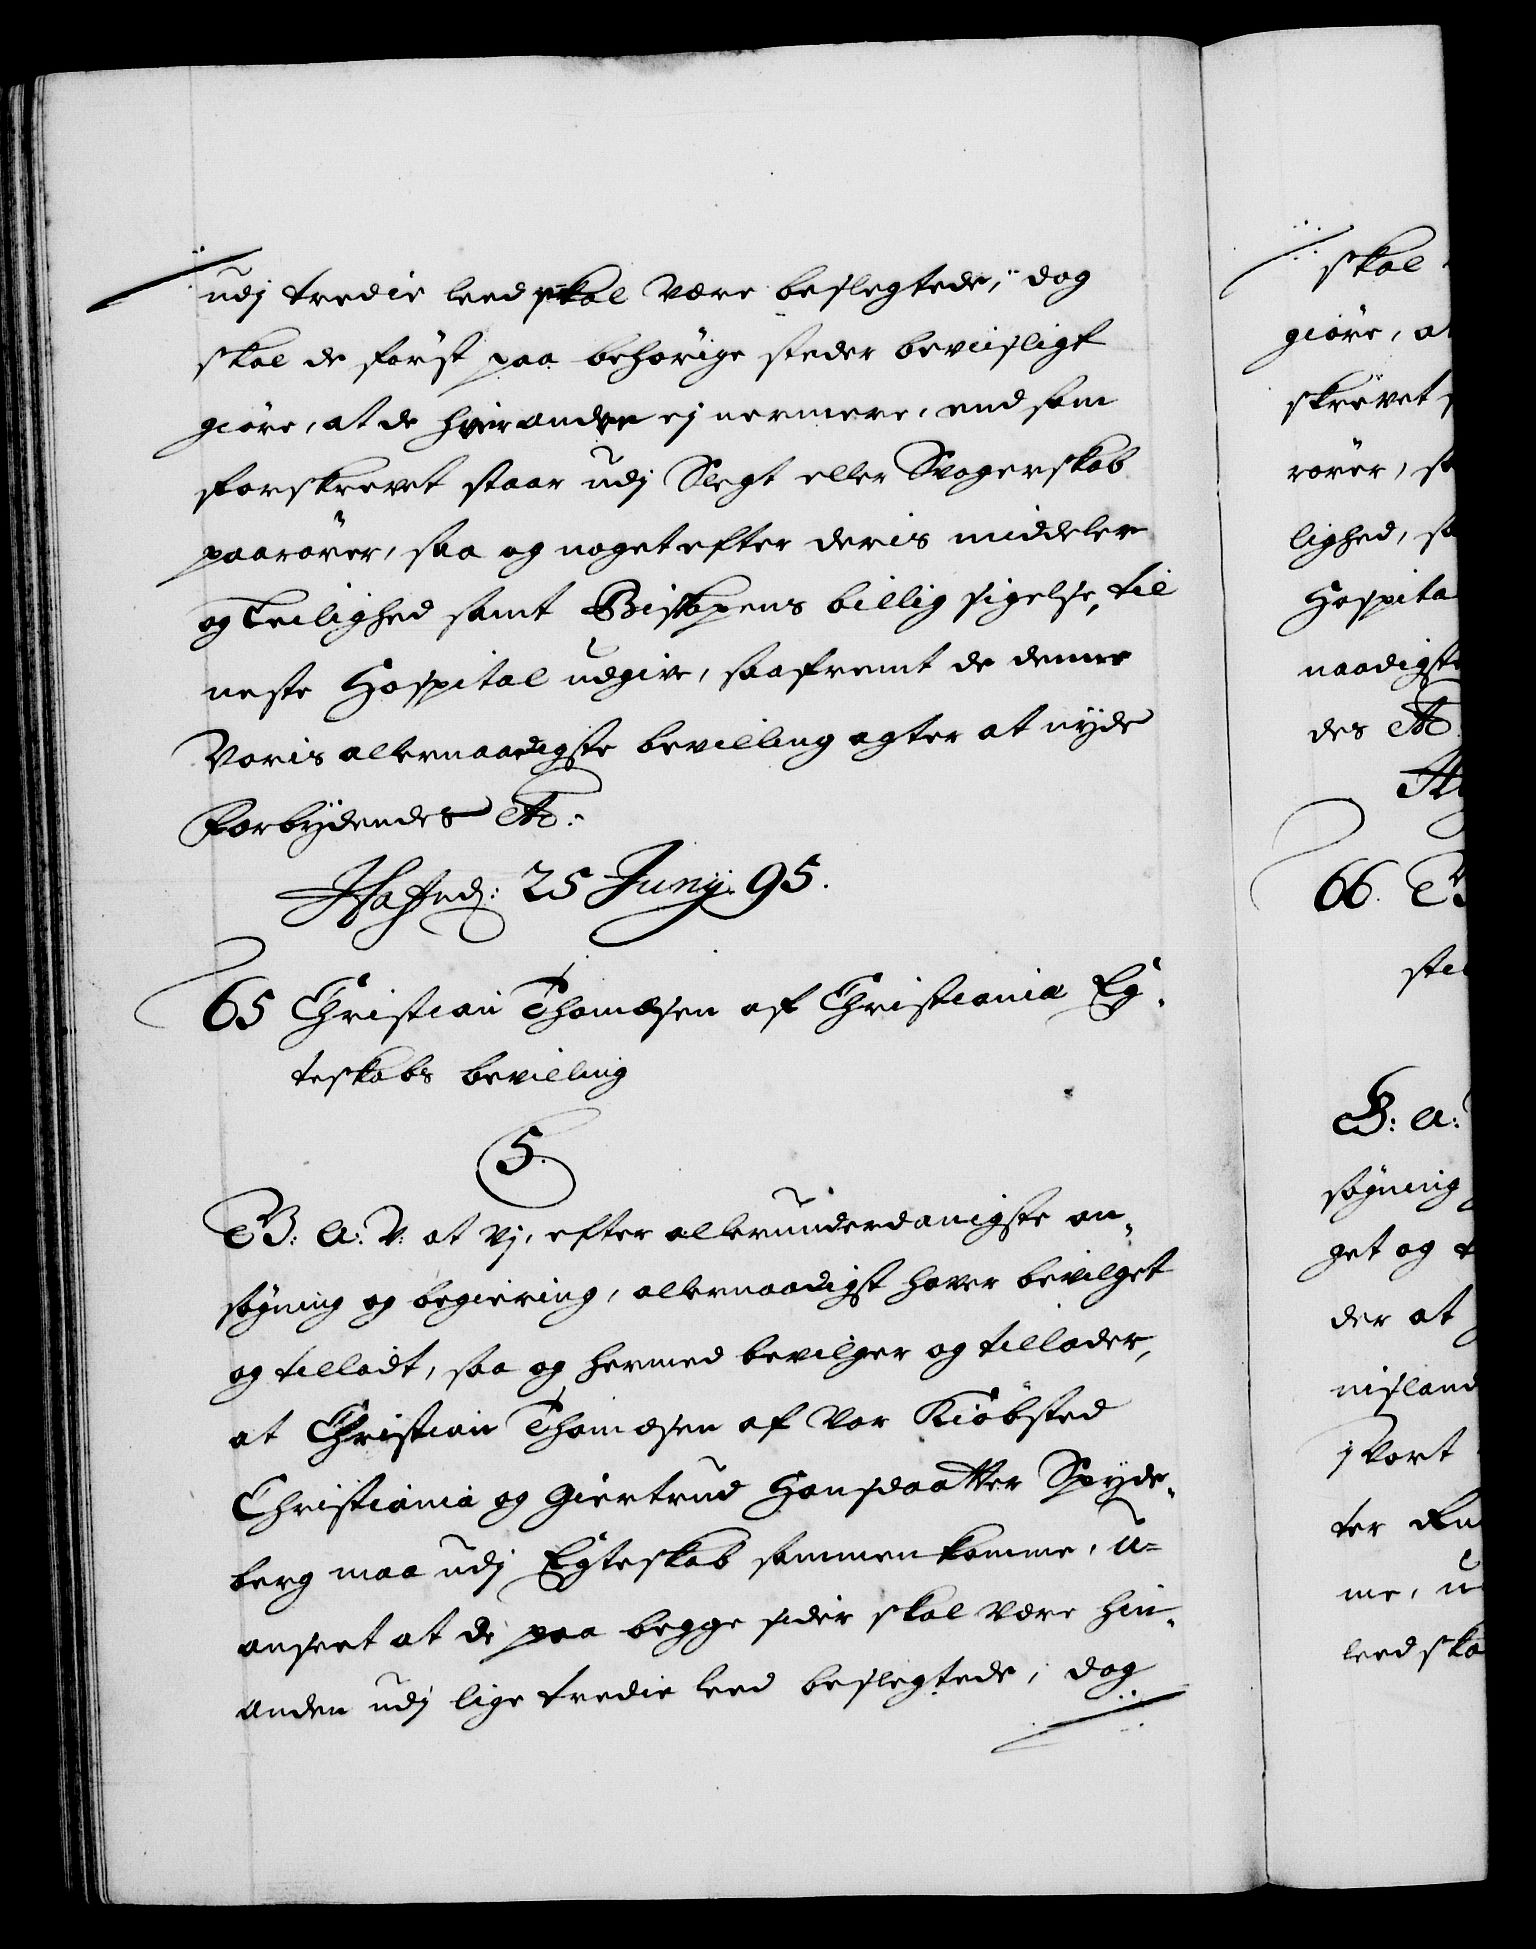 udj tredie leed skal være beslegtede, dog
skal de först paa behörige steder beviisligt
giöre, at de hver andre ej nermere, end som
forskrevet staar udj Slegt eller Svogerskab
paarörer, saa og noget efter deris middeler
og Leilighed samt Biskopens billig sigelse, til
neste Hospital udgive, saafremt de denne
Voris allernaadigste bevilling agter at nyde
Forbydendes etc:
Hafnd: 25 Junij: 95.
65 Christian Thomæsen af Christiania Eg-
teskabs bevilling
5.
B: A: V: at Vj, efter allerunderdanigste an-
søgning og begiering, allernaadigst haver bevilget
og tilladt, saa og hermed bevilger og tillader,
at Christian Thomæsen af Vor Kiöbsted
Christiania og Giertrud Hansdaatter Spyde-
berg maa udj Egteskab sammenkomme, u-
anseet at de paa begge sider skal være hin-
anden udj lige tredie leed beslegtede, dog
skal
giöre, at
skrevet
rörer, sa
lighed, sa
Hospita
naadigste
des etc
66. B
B: A:
søgning
get og t
der at
nisland
j Vort
ter
me, u
leed ska